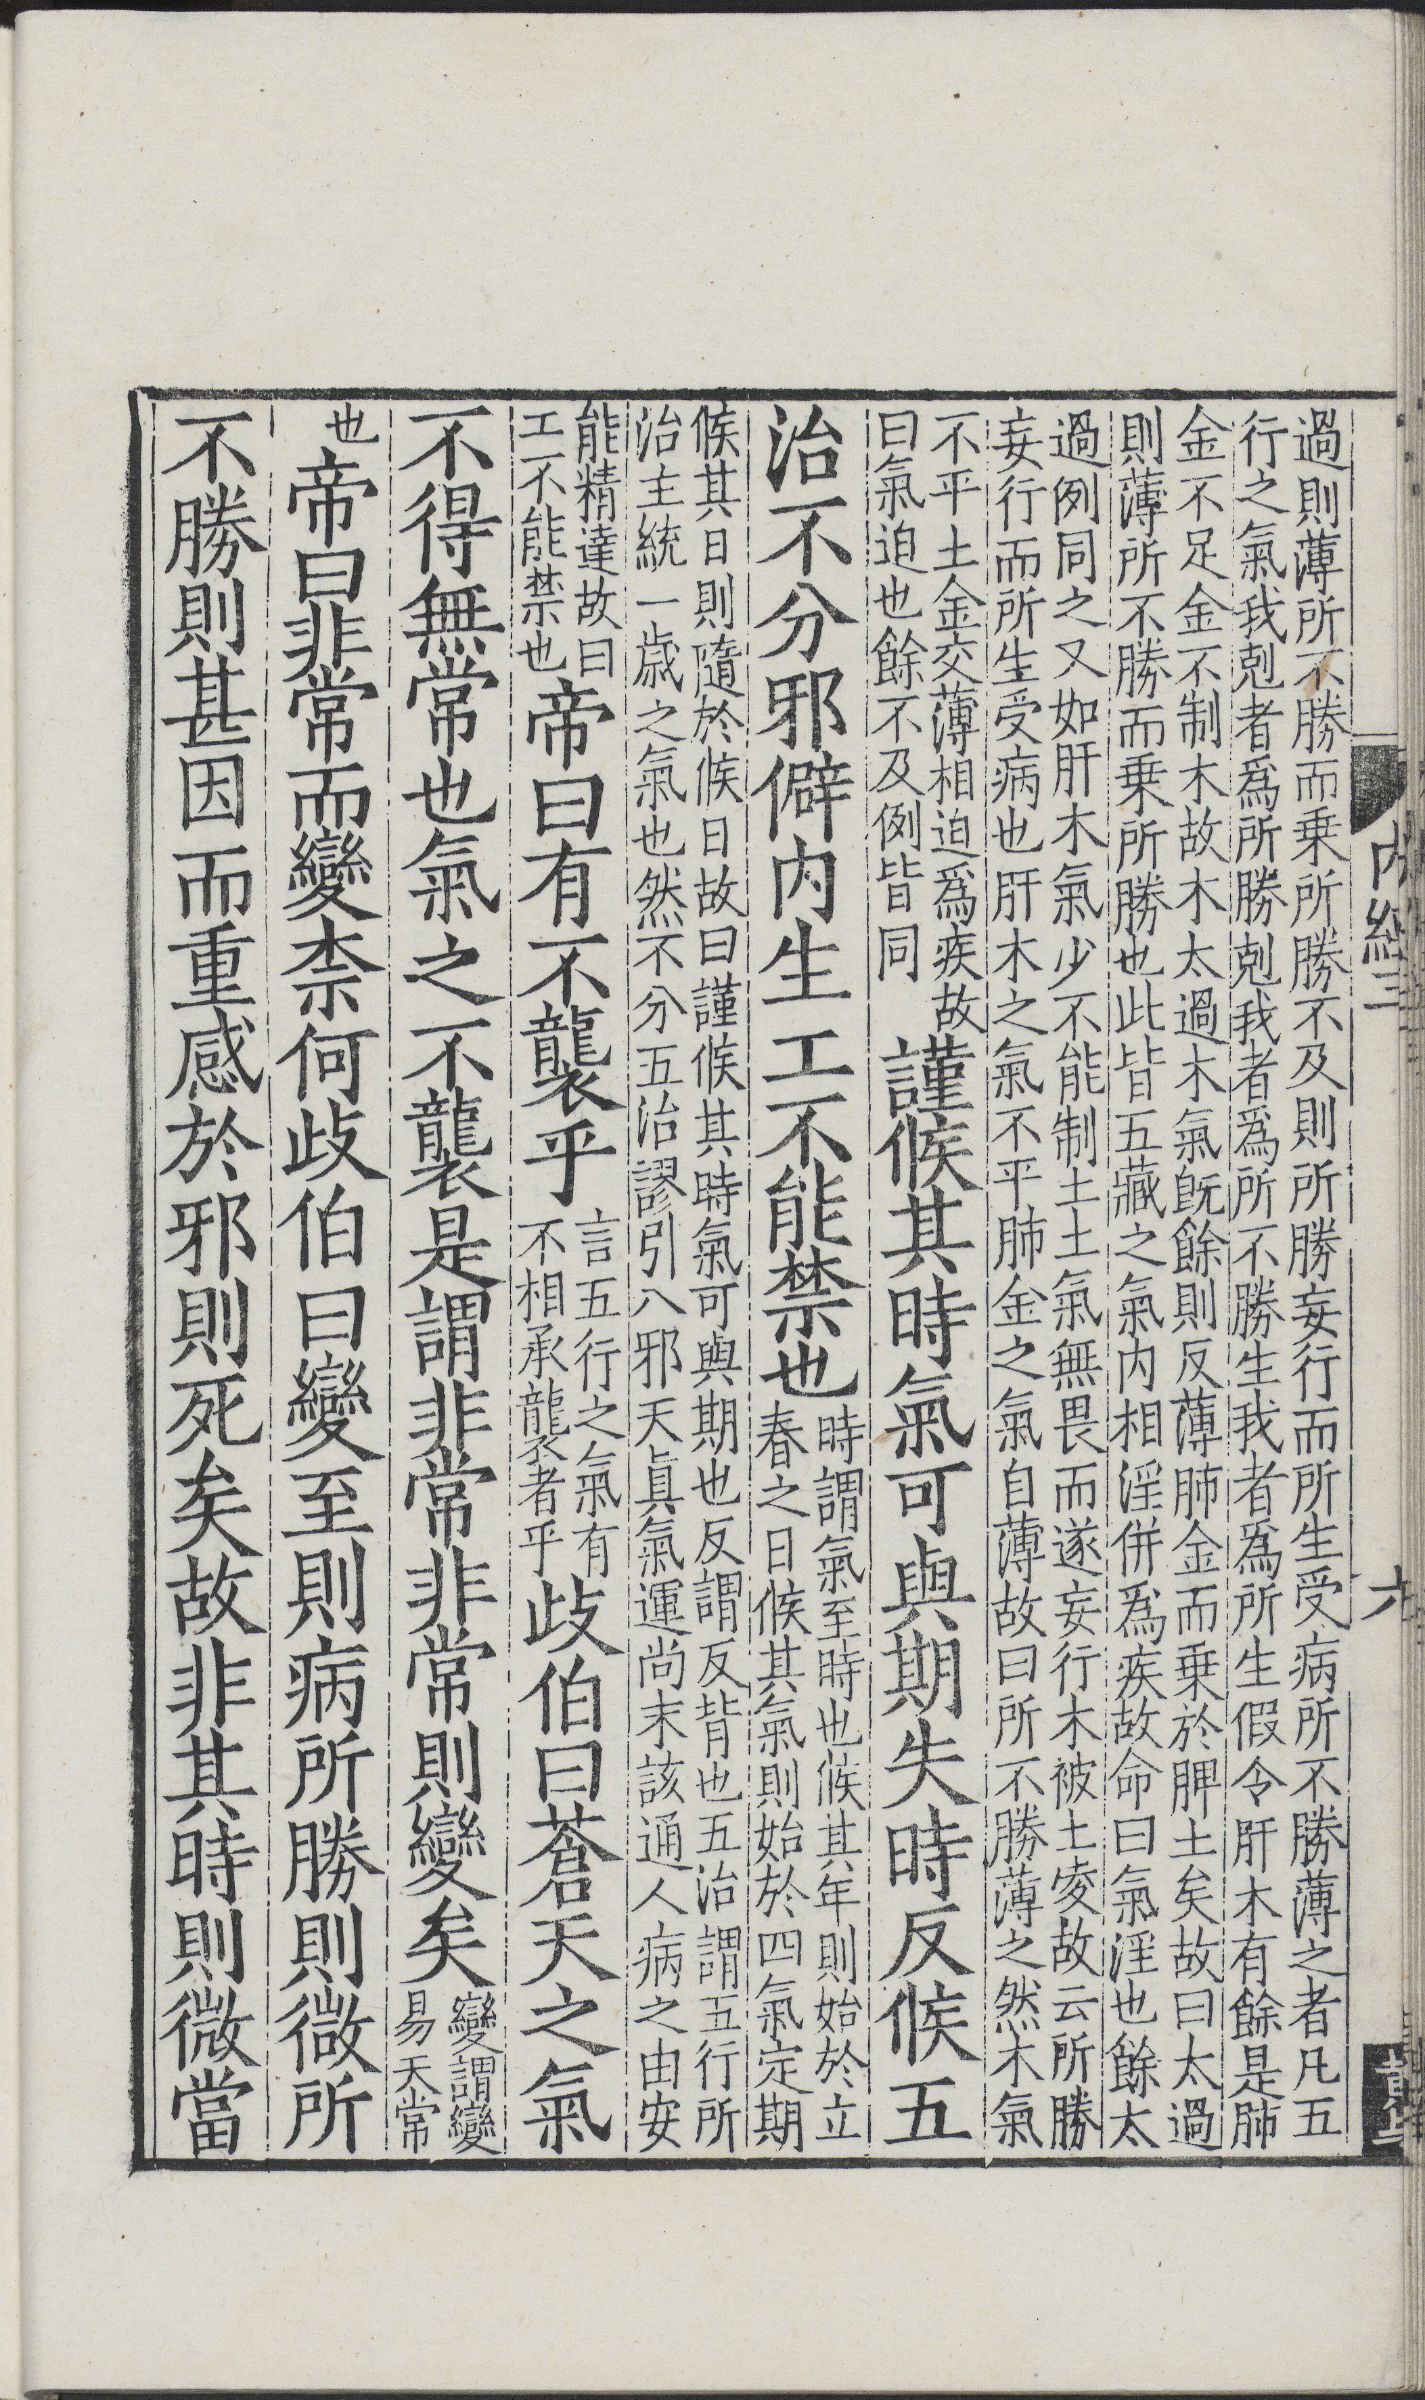 過則薄所不勝而乗所勝不及則所勝妄行而所生受病所不勝薄之者凡五
行之氣我剋者爲所勝剋我者爲所不勝生我者爲所生假令肝木有餘是肺
金不足金不制木故木太過木氣旣餘則反薄肺金而乗於脾土矣故曰太過
則薄所不勝而乗所勝也此皆五藏之氣内相淫併爲疾故命曰氣淫也餘太
過例同之又如肝木氣少不能制土土氣無畏而遂妄行木被土凌故云所勝
妄行而所生受病也肝木之氣不平肺金之氣自薄故曰所不勝薄之然木氣
不平土金交薄相迫爲疾故
曰氣迫也餘不及例皆同
謹候其時氣可與期失時反候五
治不分邪僻内生工不能禁也
時謂氣至時也候其年則始於立
春之日候其氣則始於四氣定期
候其日則隨於候日故曰謹候其時氣可與期也反謂反背也五治謂五行所
治主統一歳之氣也然不分五治謬引八邪天眞氣運尚未該通人病之由安
能精達故曰
工不能禁也
帝曰有不襲乎
言五行之氣有
不相承襲者乎
歧伯曰蒼天之氣
不得無常也氣之不襲是謂非常非常則變矣
變謂變
易天常
也
帝曰非常而變柰何歧伯曰變至則病所勝則微所
不勝則甚因而重感於邪則死矣故非其時則微當
内經三
六